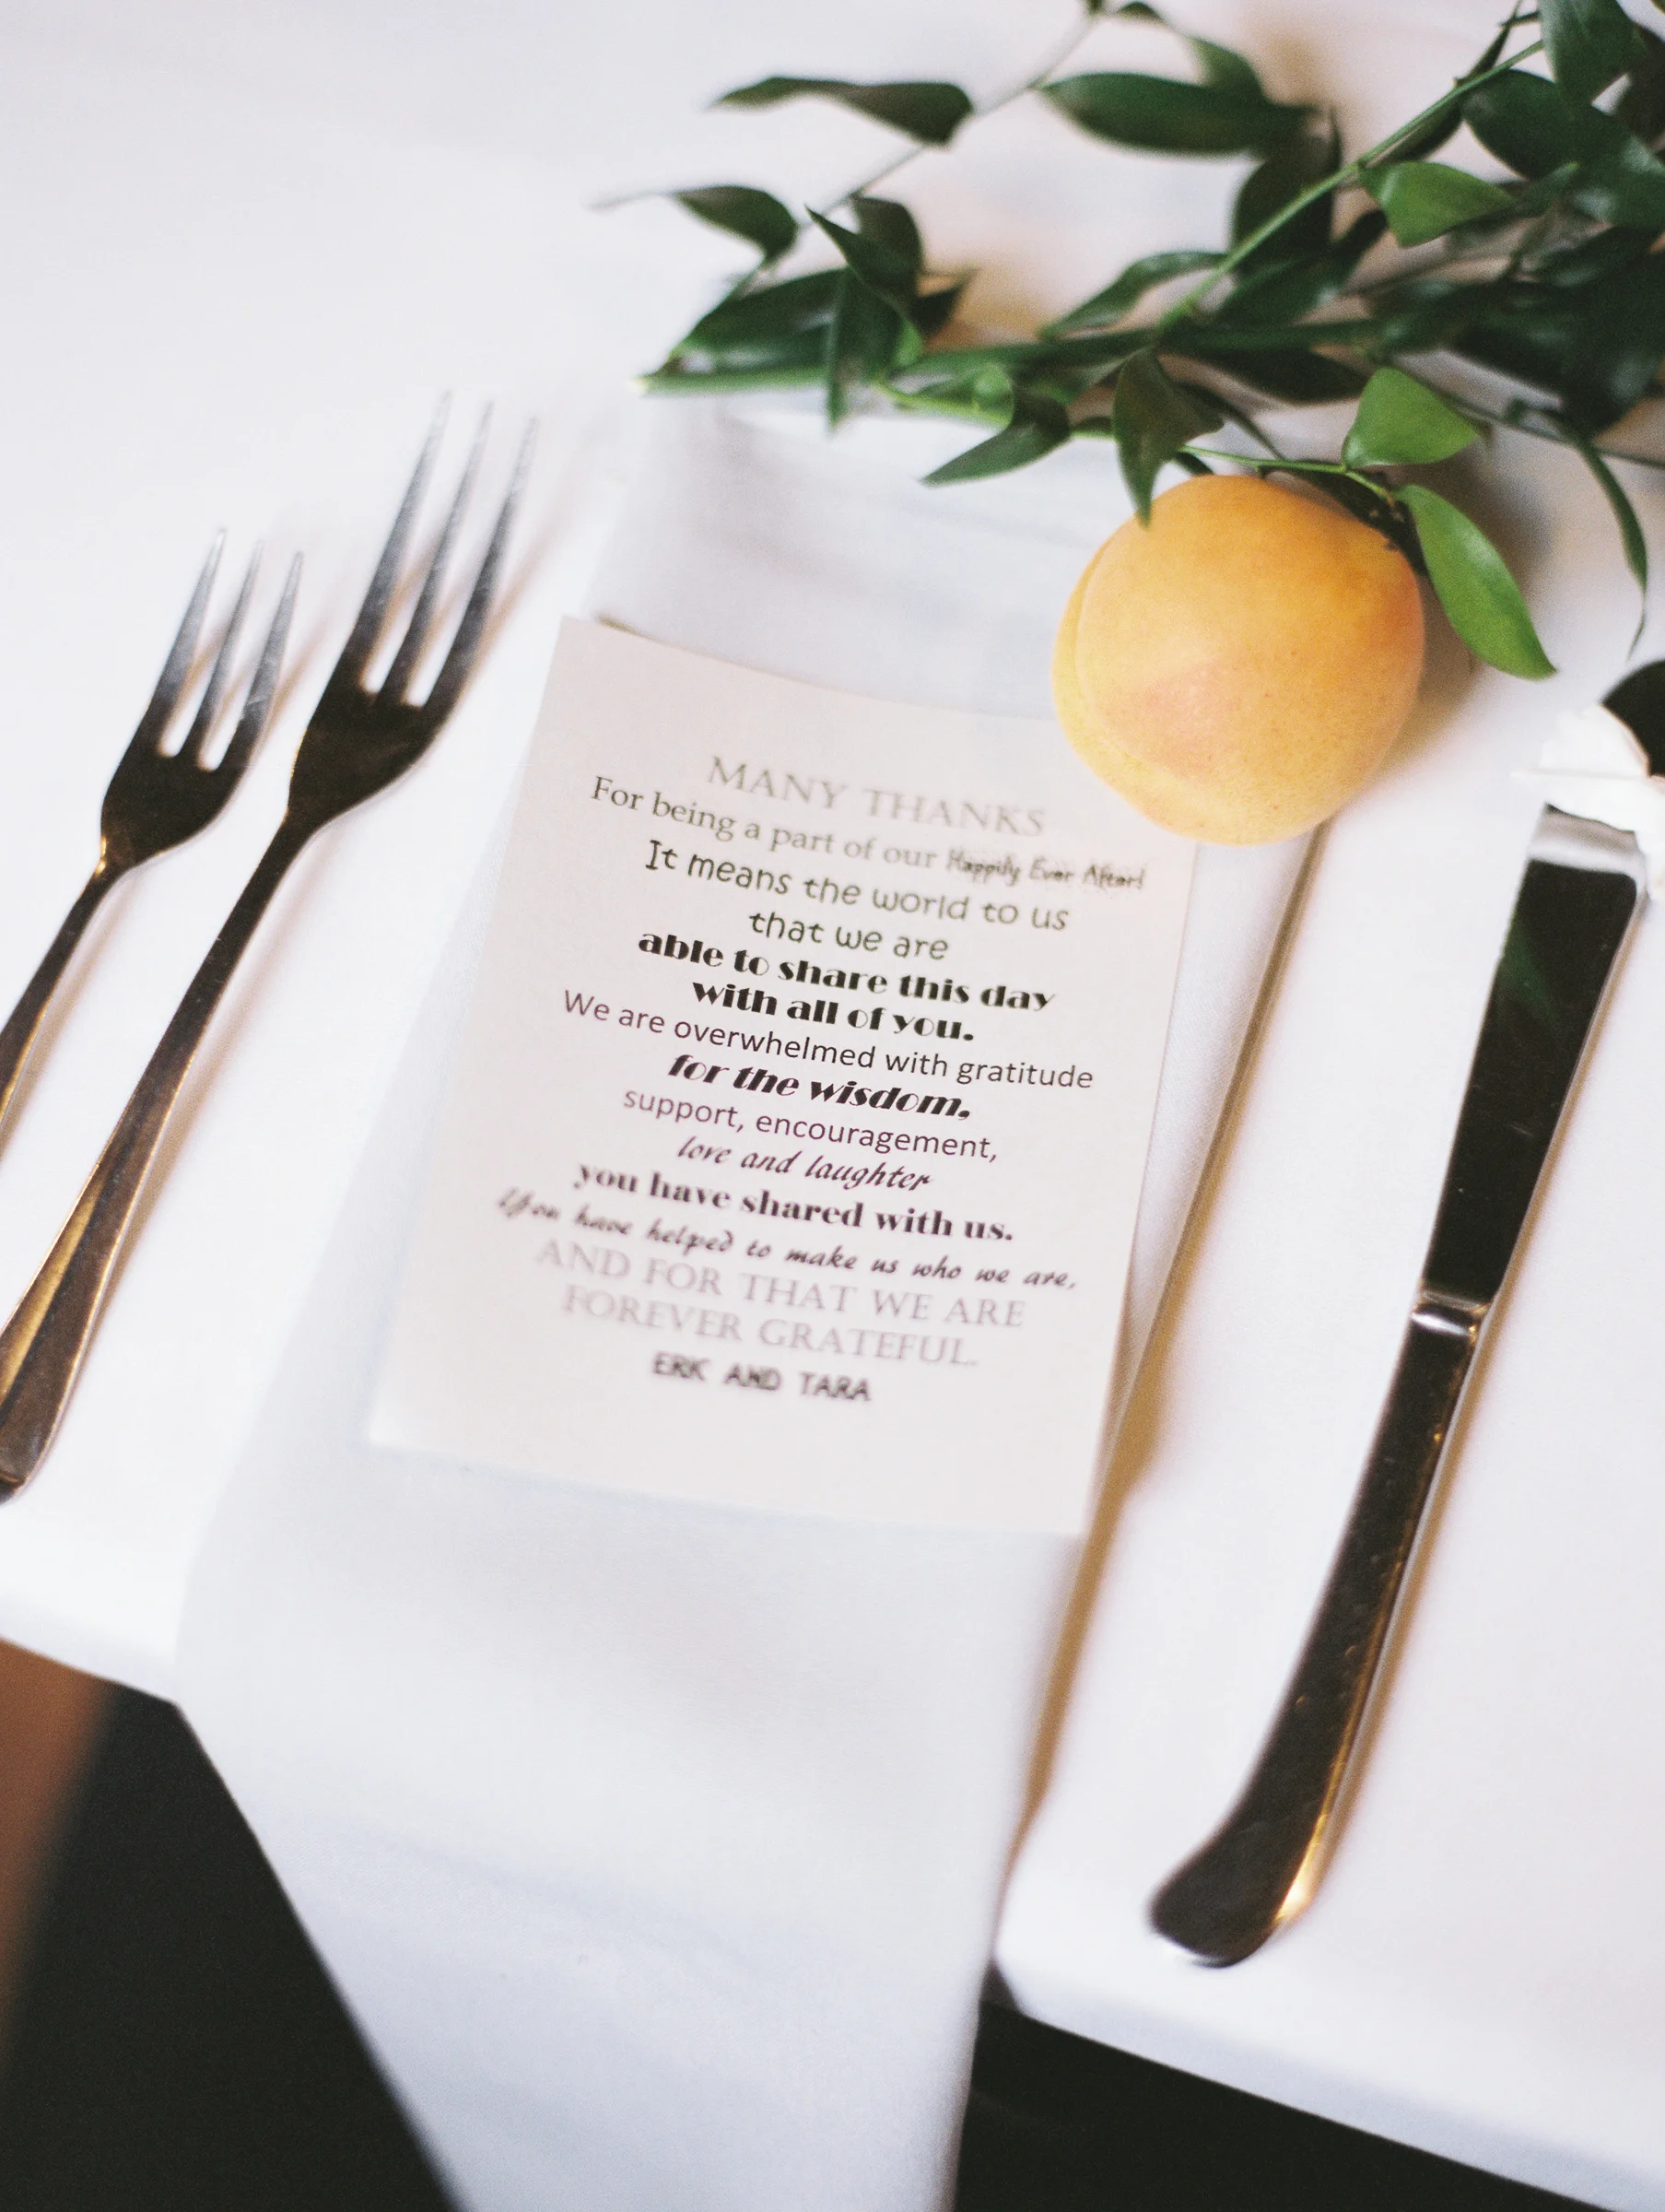 MANY THANKS
For being a part of our Happily Ever After!
It means the world to us
that we are
able to share this day
with all of you.
We are overwhelmed with gratitude
for the wisdom,
support, encouragement,
love and laughter
you have shared with us.
have helped to make us who we are,
AND FOR THAT WE ARE
FOREVER GRATEFUL.
ERIK AND TARA